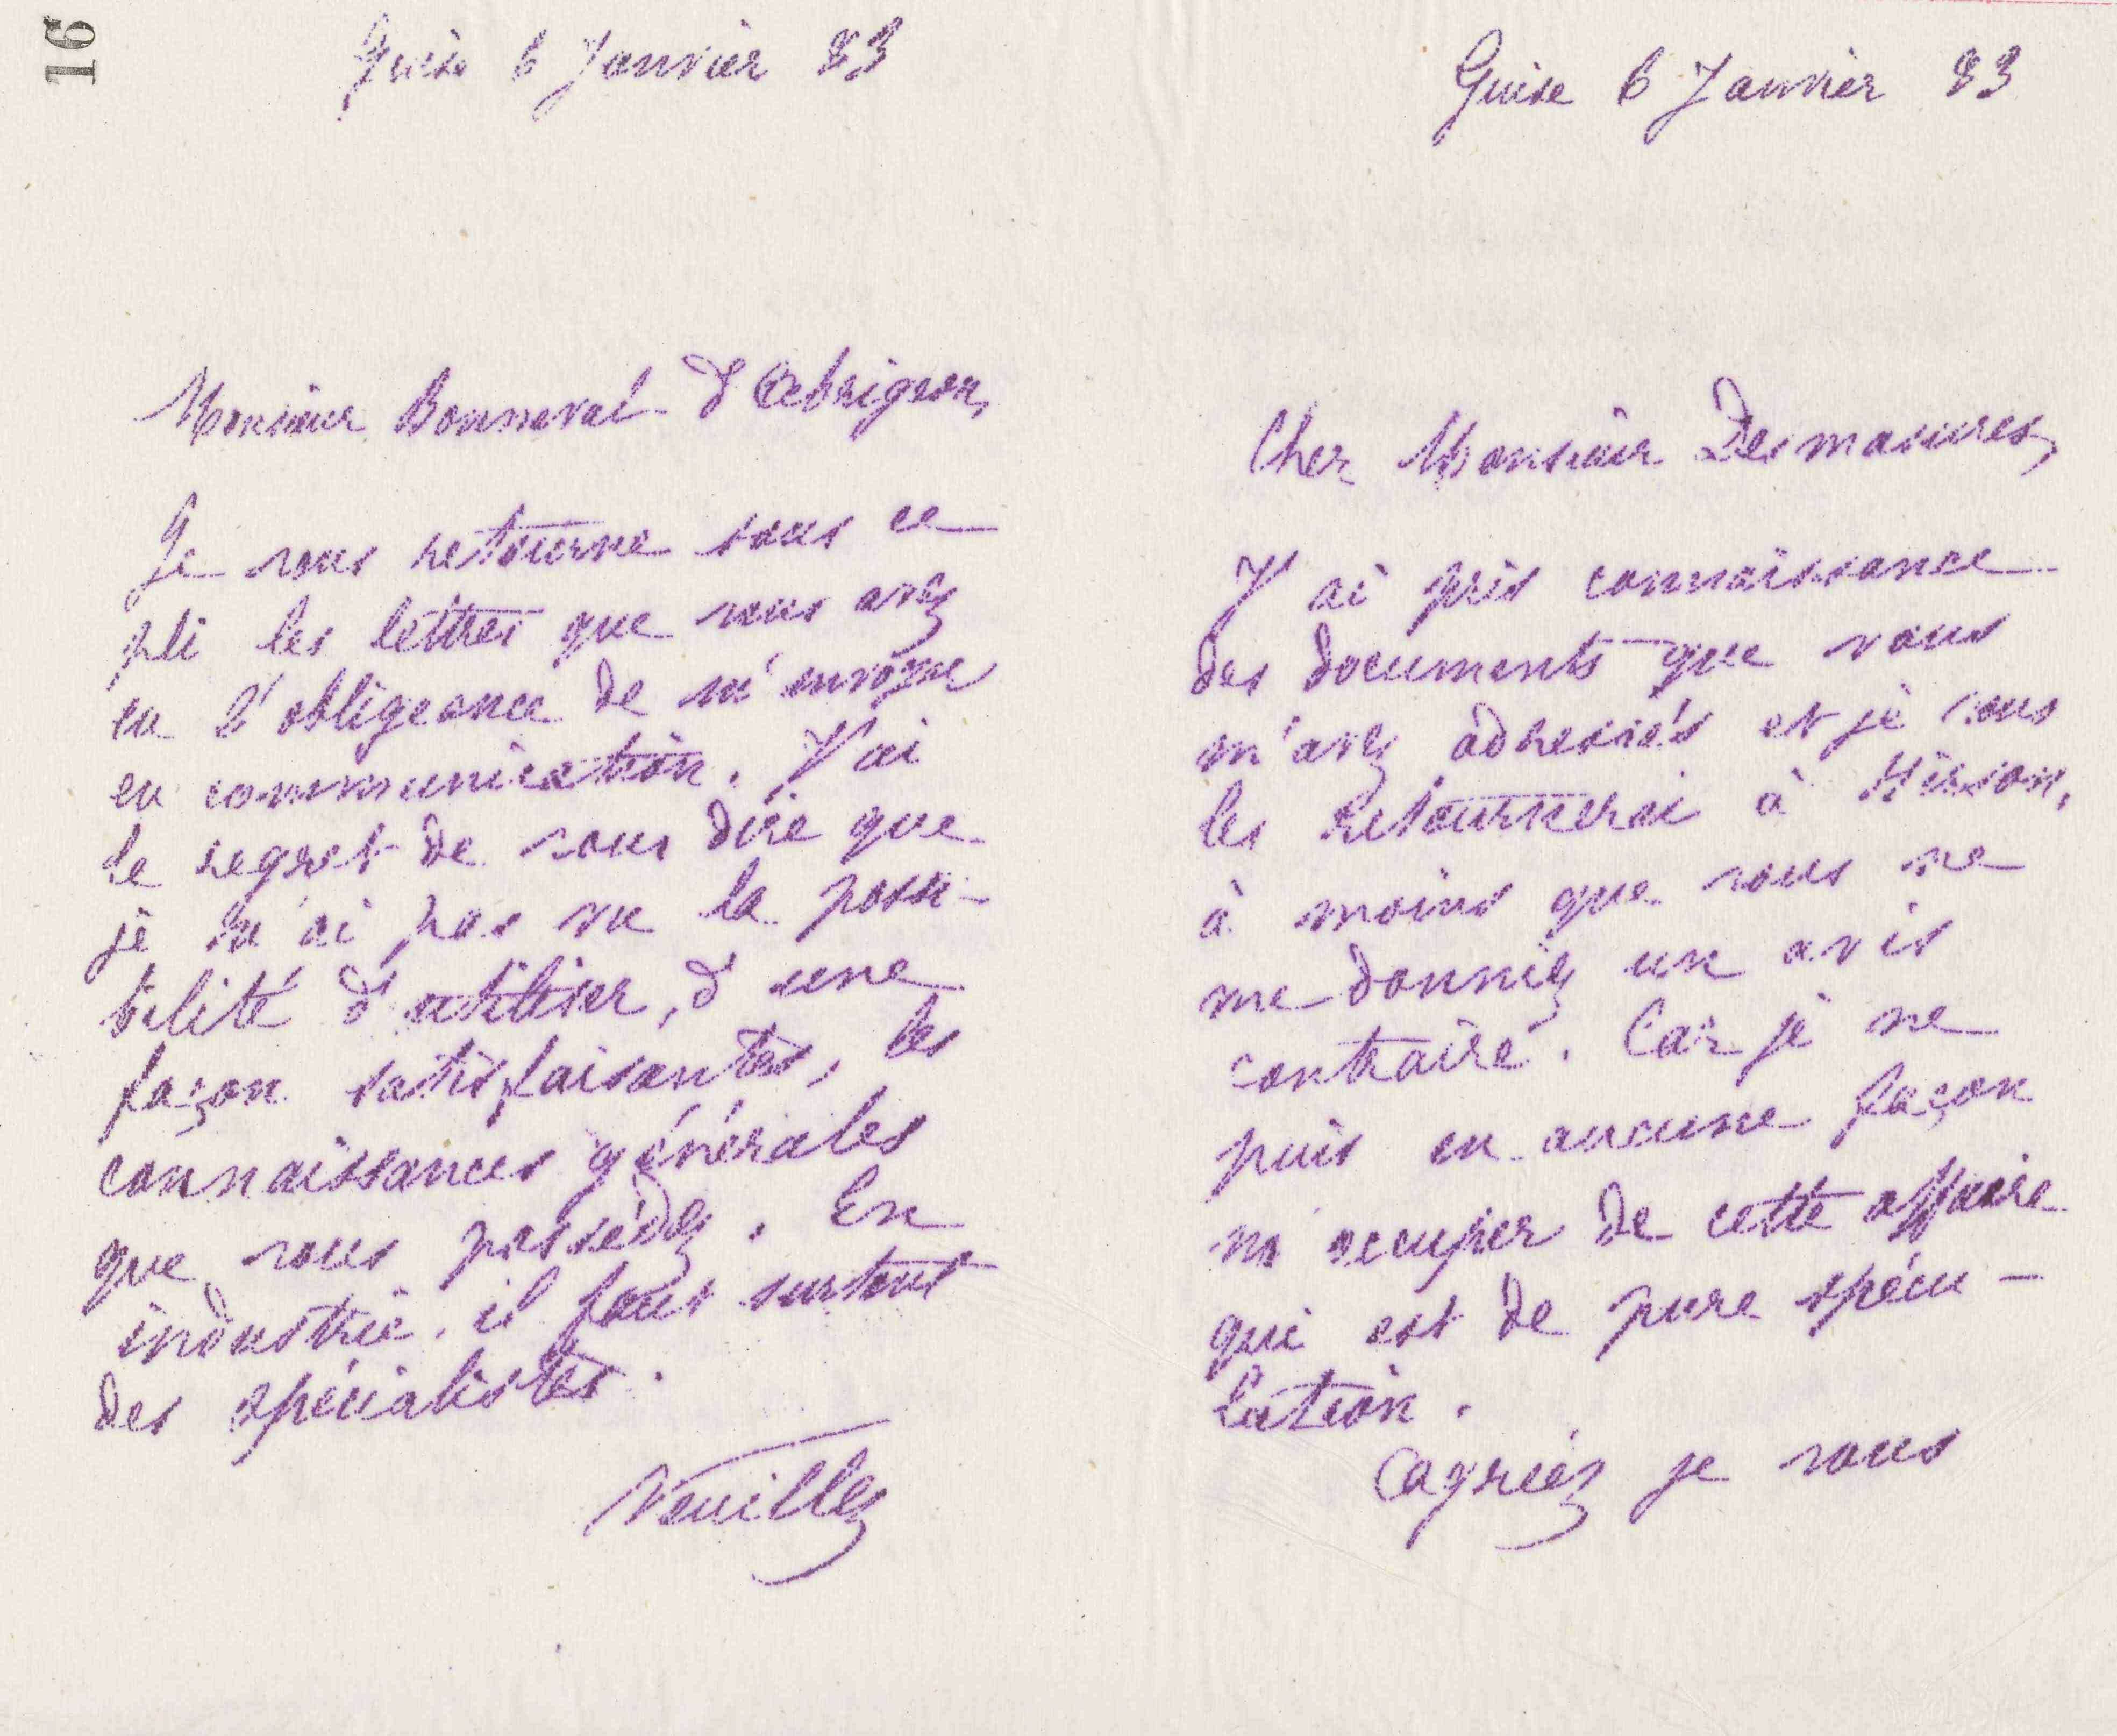 16
Guise 6 Janvier 83
Monsieur Bonneval d'
Je vous retourne sous ce
pli les lettres que vous avez
eu l'obligeance de m'envoyer
en communication. J'ai
le regret de vous dire que
je n'ai pas vu la possi-
bilité d'utiliser, d'une
façon satisfaisantes, les
connaissances générales
que vous possédez. En
industrie, il faut surtout
des spécialistes.
Veuillez
Guise 6 Janvier 83
Cher Monsieur Desmasures,
J'ai pris connaissance
des documents que vous
m'avez adressés et je vous
les retournerai à Hirson,
à moins que vous ne
me donniez un avis
contraire. Car je ne
puis en aucune façon
m'occuper de cette affaire
qui est de pure spécu-
lation.
Agréez je vous